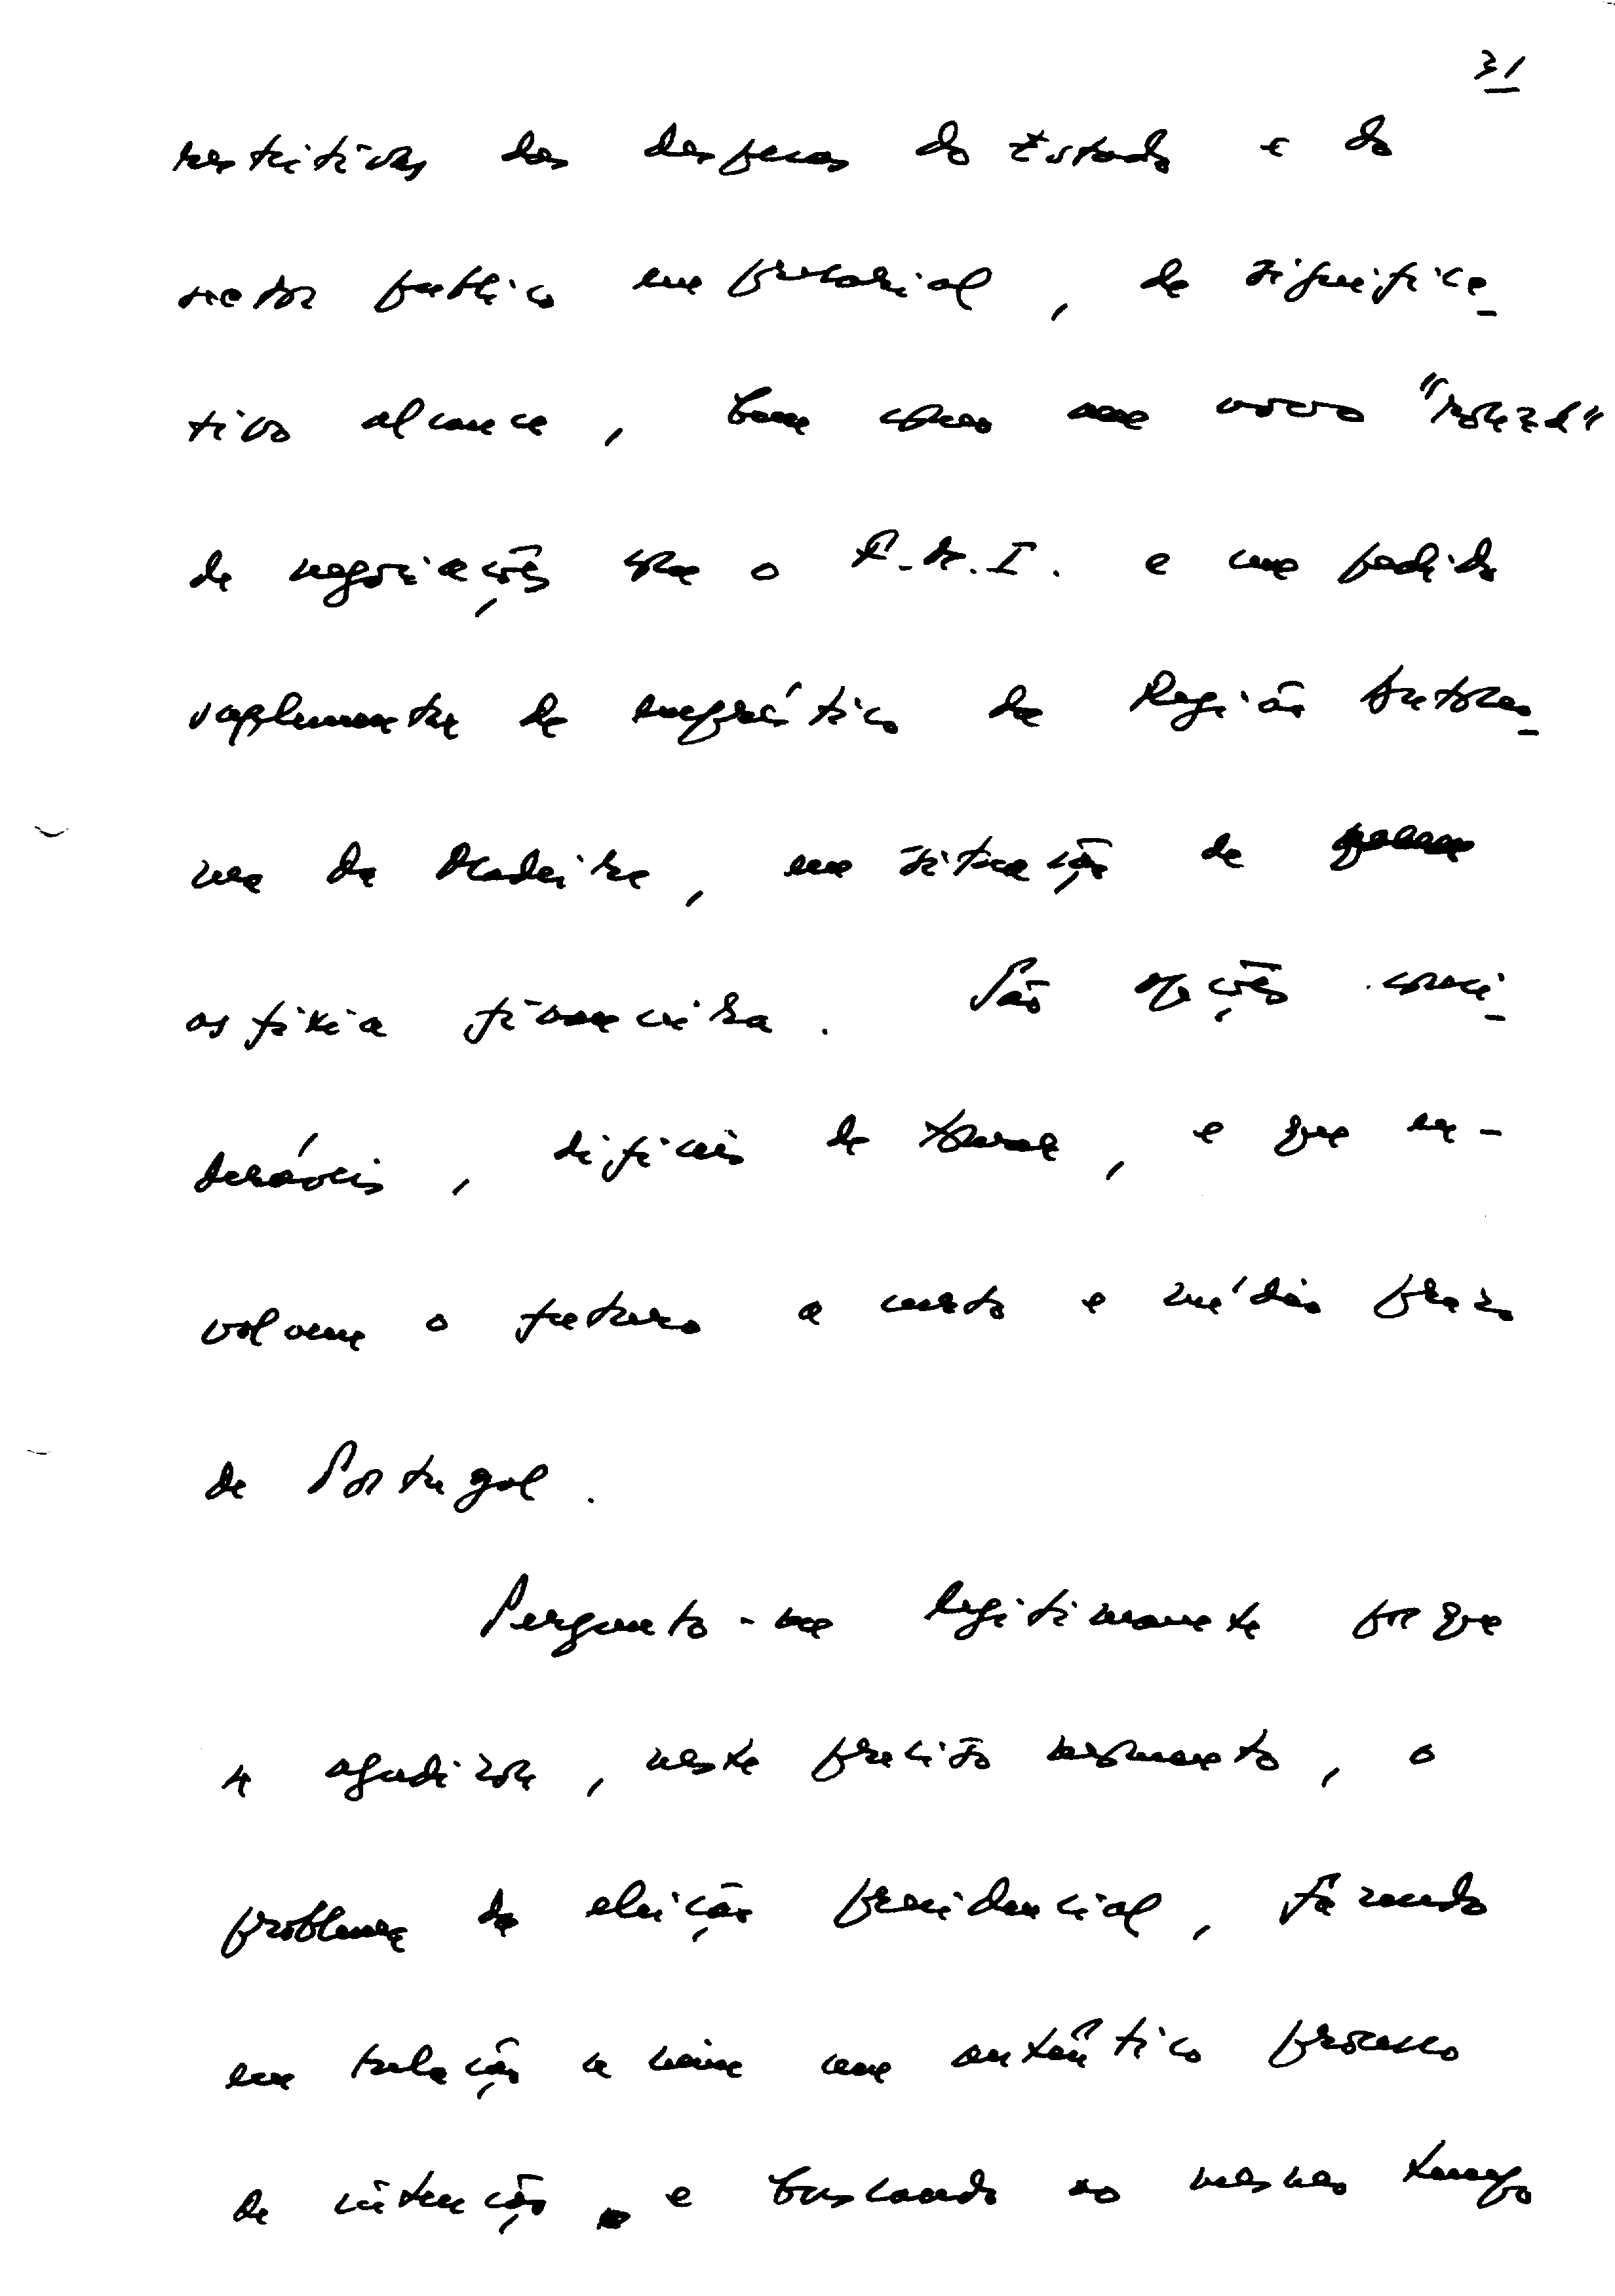 31
restritivas das despesas do Estado e do
sector publico empresarial, de significa-
tivo alcance, bem como um novo "round"
de negociações com o F.M.I. e um pedido
suplementar de empréstimo da Região Autóno-
ma da Madeira, em situação de
asfixia financeira. São opções consi-
deráveis, difíceis de tomar, e que en-
volvem o futuro a curto e médio prazo
de Portugal.
Pergunto-me legitimamente porque
é agudizar, neste preciso momento, o
problema da eleição presidencial, fazendo
em relação a mim um autêntico processo
de intenção e buscando ao mesmo tempo